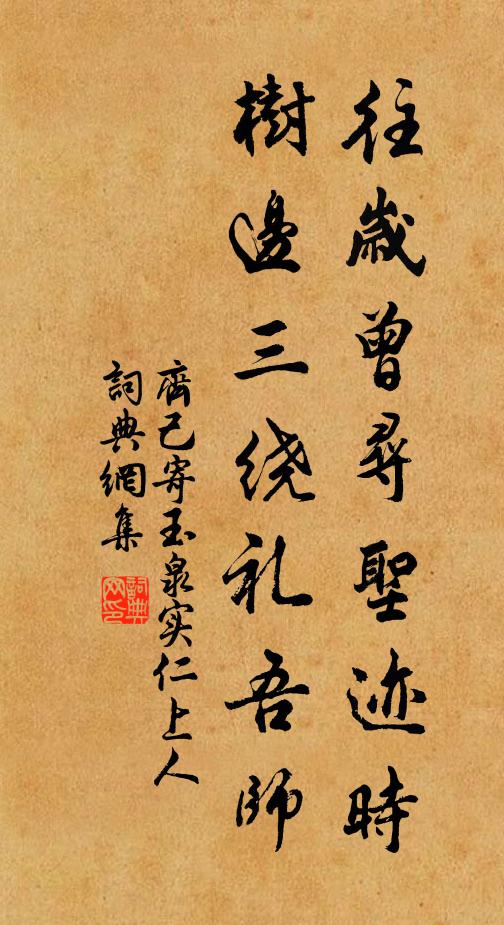 往歲曾尋聖迹時
樹邊三绕礼吾師
齊己寄玉泉实仁上人
詞典網集
詞典網印